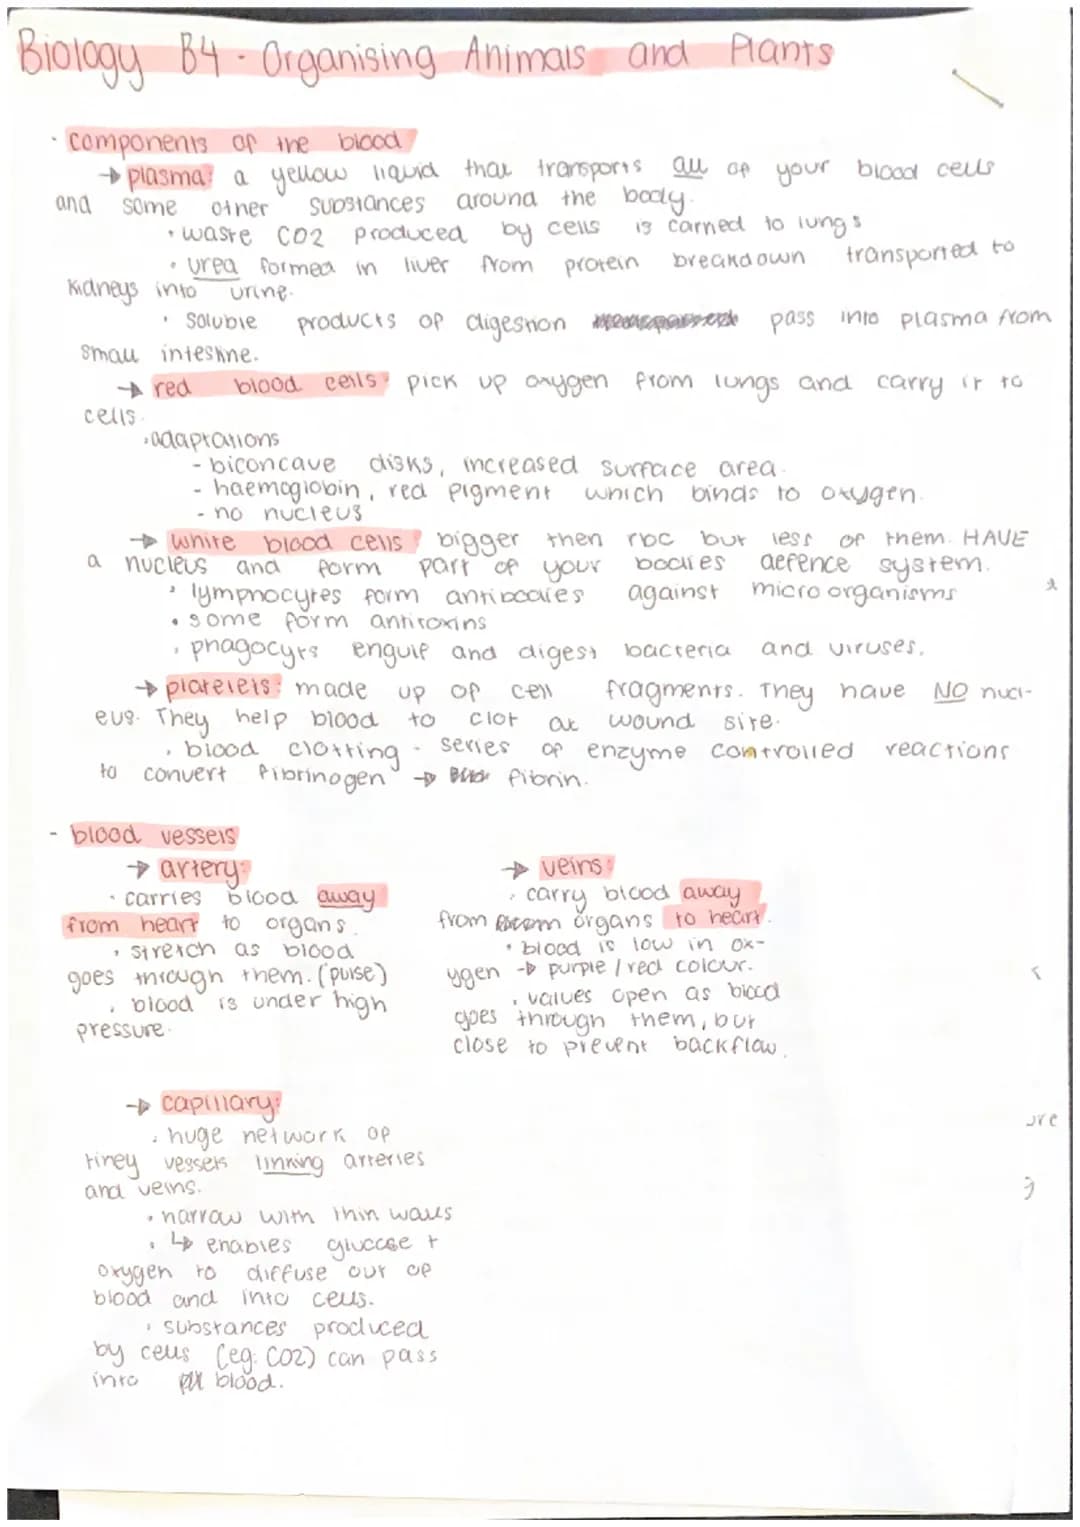 Biology B4 - Organising Animals and Plants
· components of the blood
→ plasma: a yellow liquid that transports all of your blood cells
and some other substances around the body.
· waste CO2 produced by cells is carried to lungs
· urea formed in liver from protein breakdown transported to
kidneys into urine.
· soluble products of digestion pass into plasma from
small intestine.
→ red blood cells: pick up oxygen from lungs and carry it to
cells.
· adaptations
- biconcave disks, increased surface area.
- haemoglobin, red pigment which binds to oxygen.
- no nucleus
→ white blood cells: bigger then rbc but less of them. HAVE
a nucleus and form part of your bodies defence system.
· lymphocytes form antibodies against microorganisms
· some form antitoxins
· phagocyts engulf and digest bacteria and viruses.
→ platelets: made up of cell fragments. They have NO nucl-
eus. They help blood to clot at wound site.
· blood clotting - series of enzyme controlled reactions
to convert fibrinogen → fibrin.
- blood vessels
→ artery:
· carries blood away
from heart to organs.
· stretch as blood
goes through them. (pulse)
· blood is under high
pressure.
→ veins:
· carry blood away
from organs to heart.
· blood is low in ox-
ygen → purple/red colour.
· valves open as blood
goes through them, but
close to prevent backflow.
→ capillary:
· huge network of
tiney vessels linking arteries
and veins.
· narrow with thin walls
· ↳ enables glucose +
oxygen to diffuse out of
blood and into cells.
· substances produced
by cells (eg. CO2) can pass
into blood.